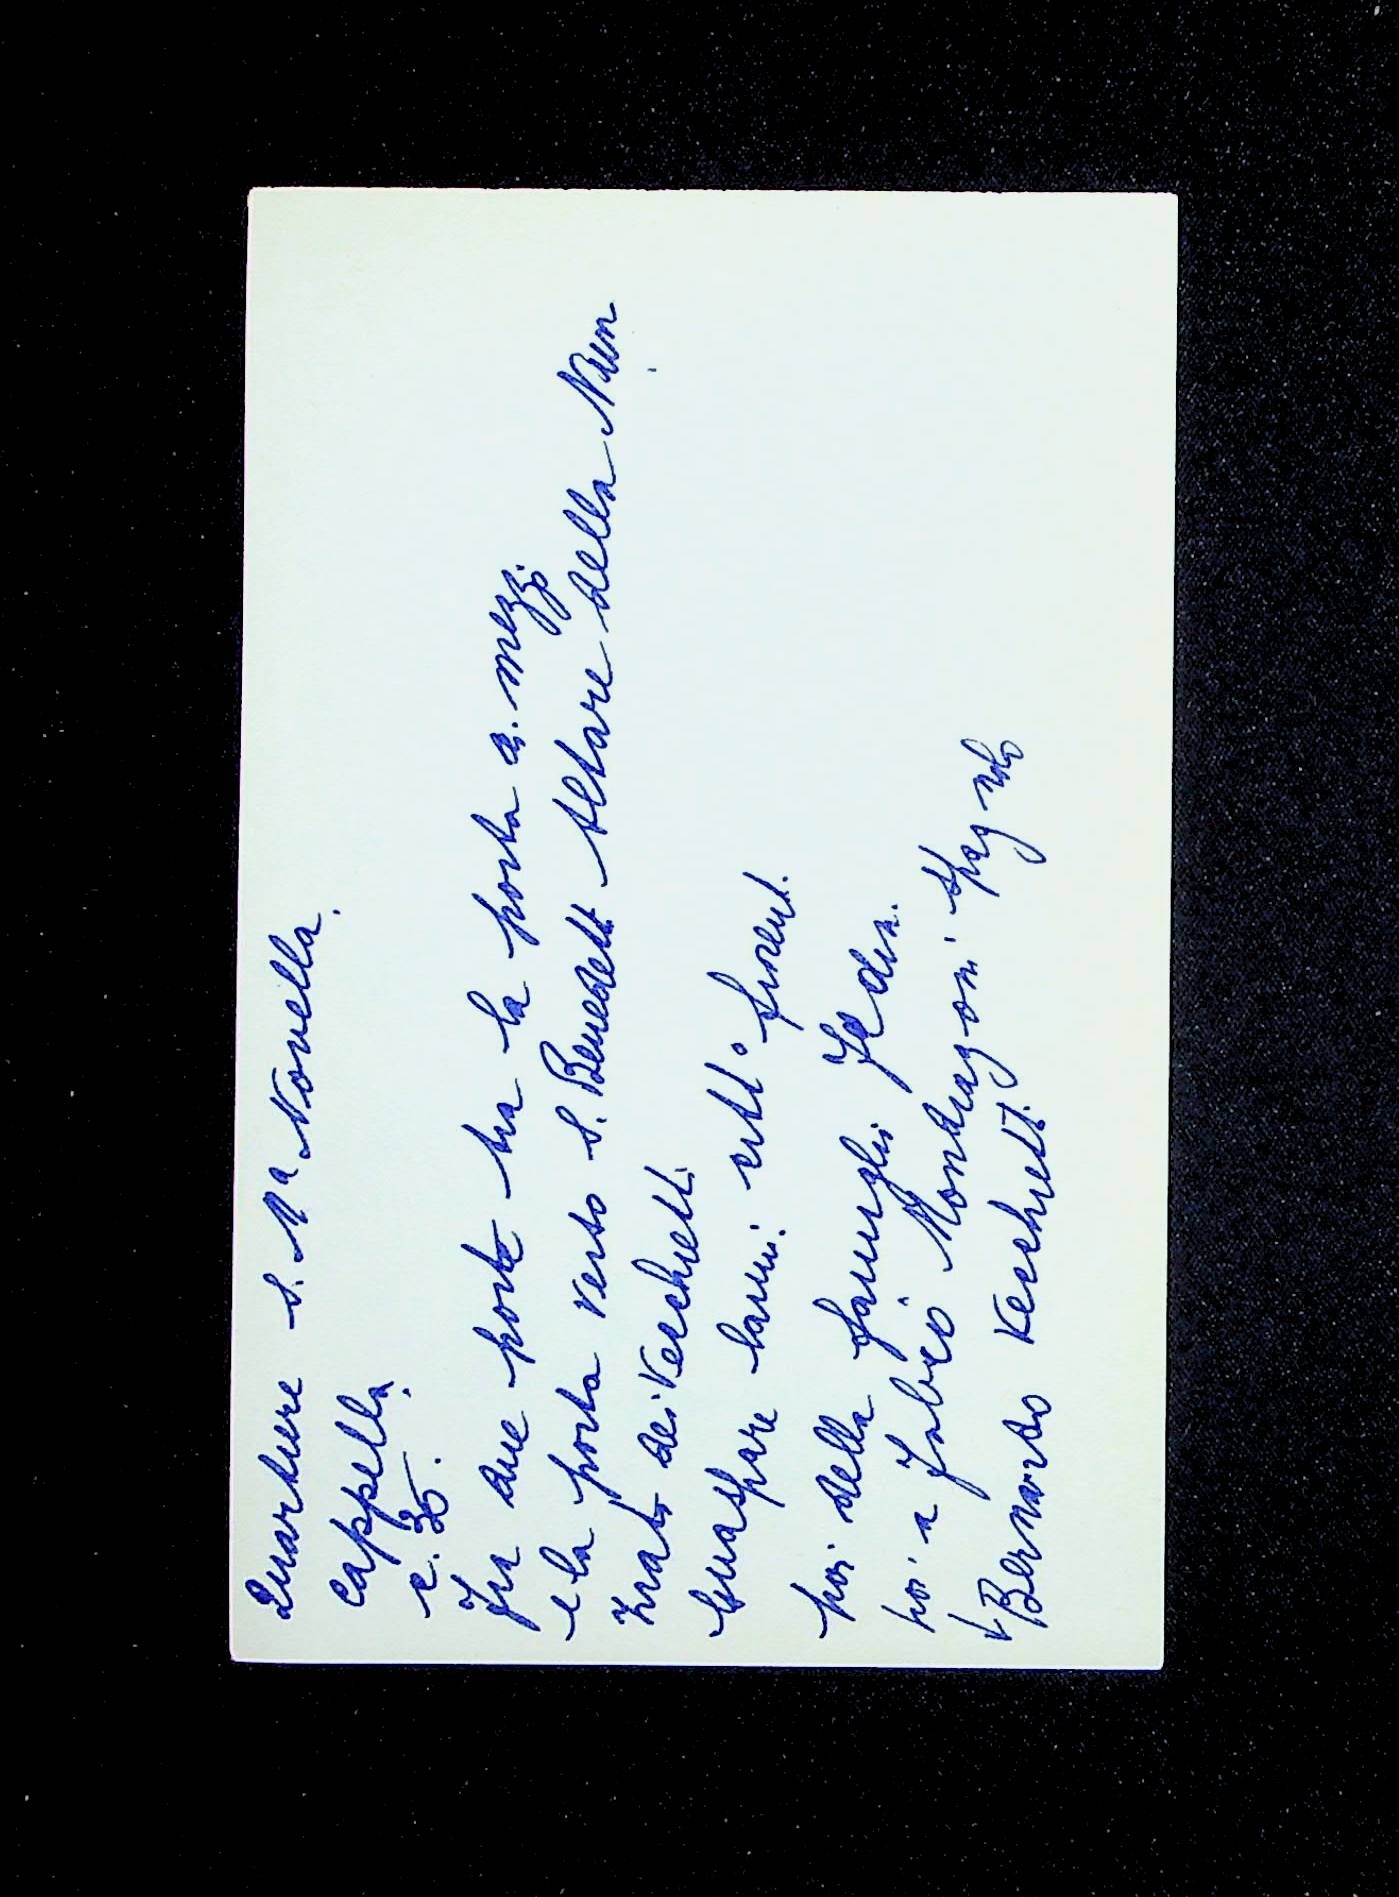 Quartiere S. Mª Novella.
Cappella.
c. 35.
Fra due porte tra la porta di mezzo
e la porta verso S. Benedetto Altare della Nun
ziata dei Vecchietti
Guaspare Lami citt.o fiorent.
poi della famiglia
poi a Fabio Mondragoni Spagnolo
Bernardo Vecchietti